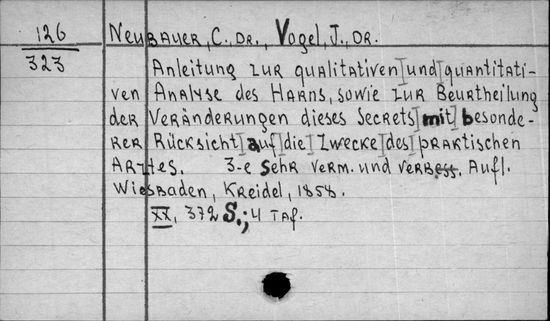 126
323
Neubauer, C. Dr., Vogel, J., Dr.
Anleitung zur qualitativen und quantitati-
ven Analyse des Harns, sowie zur Beurtheilung
der Veränderungen dieses Secrets mit besonde-
rer Rücksicht auf die Zwecke des praktischen
Arztes. 3-e sehr verm. und verbess. Aufl.
Wiesbaden, Kreidel, 1858.
XX, 372 S.; 4 Taf.